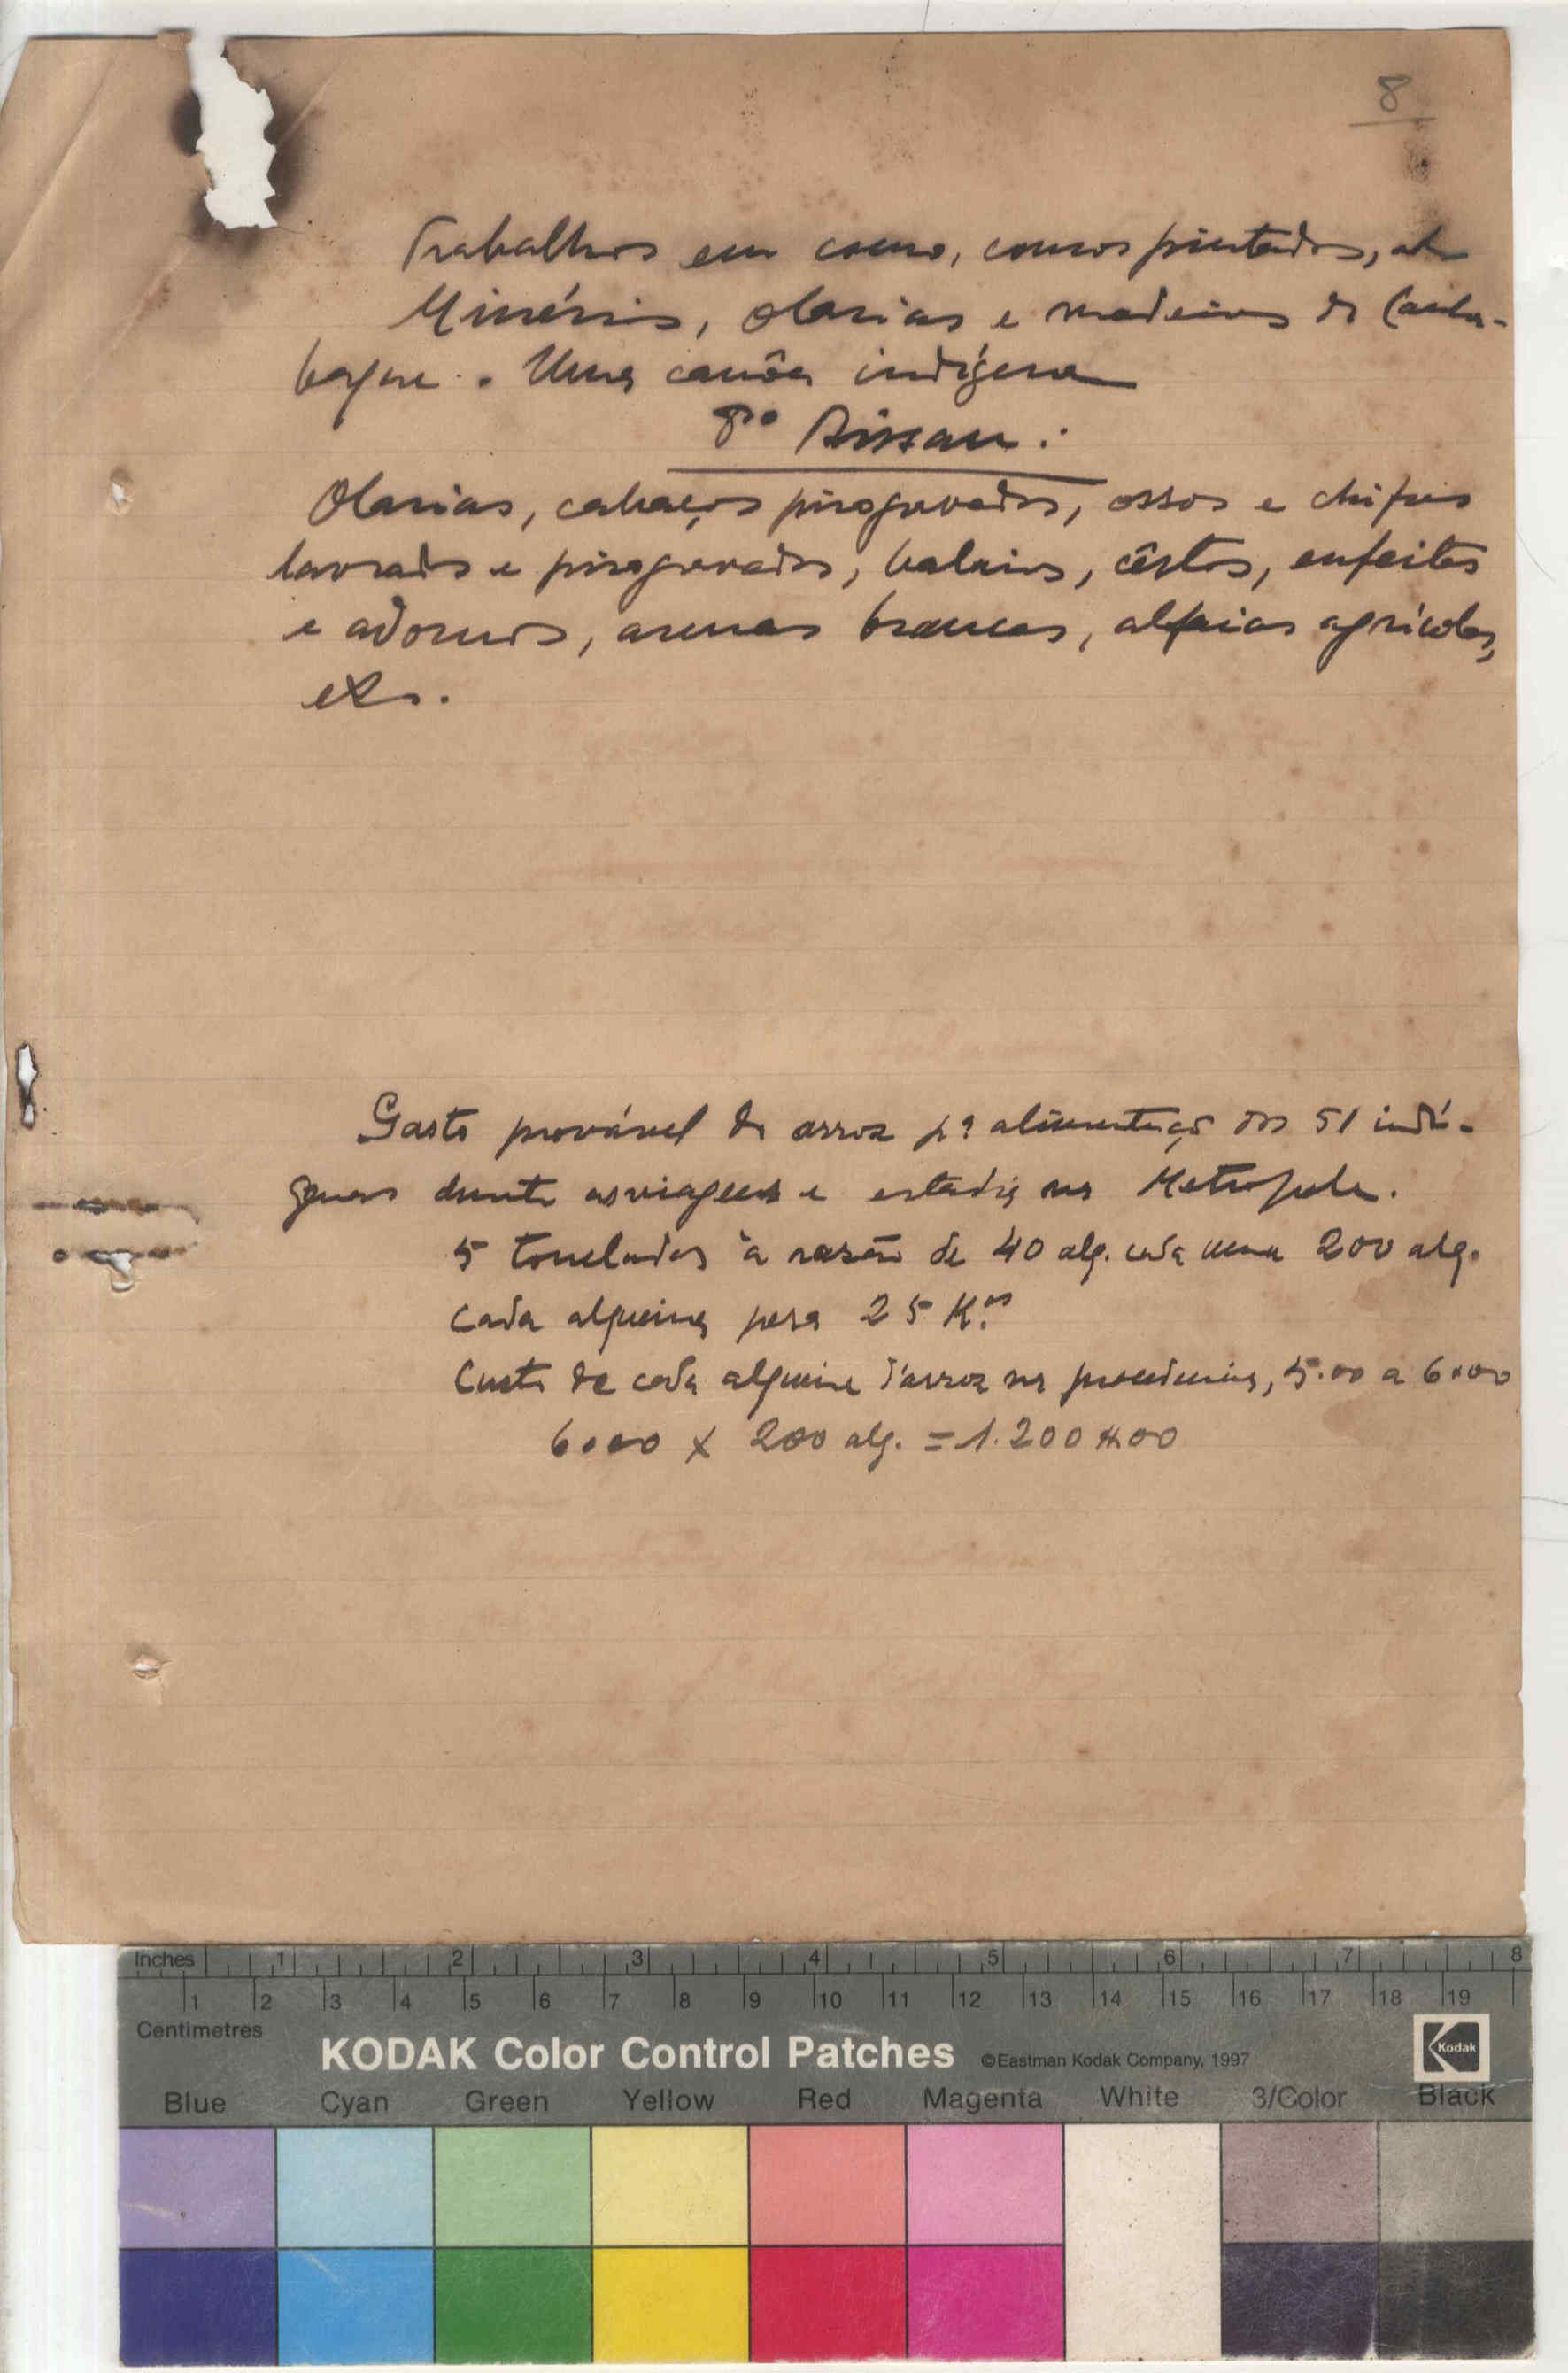 8
Trabalhos em couro, couros pintados, etc
Minérios, olarias e madeiras de
Uma canôa indígena
8º Bissau:
Olarias, cabaços pirogravados, ossos e chifres
lavrados e pirogravados, balaios, cêstos, enfeites
e adornos, armas brancas, alfaias agrícolas,
etc.
Gasto provável de arroz pª alimentação dos 51 indí-
genas durante as viagens e estadia na Metropole.
5 toneladas à razão de 40 alg. cada uma 200 alg.
Cada alqueire pesa 25 K.os
Custo de cada alqueire d'arroz na procedencia, 5.00 a 6.00
6.00 X 200 alg. = 1.200$00
Inches 1 2 3 4 5 6 7 8
1 2 3 4 5 6 7 8 9 10 11 12 13 14 15 16 17 18 19
Centimetres
KODAK Color Control Patches ©Eastman Kodak Company, 1997 Kodak
Blue Cyan Green Yellow Red Magenta White 3/Color Black